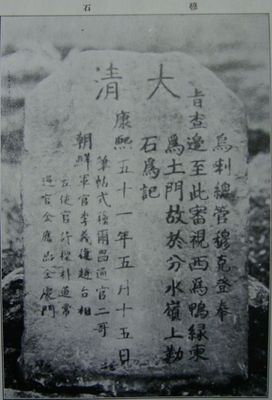 穆石
大清
烏剌總管穆克登奉
旨查邊至此審視西爲鴨緑東
爲土門故於分水嶺上勒
石爲記
康熙五十一年五月十五日
筆帖式蘇爾昌通官二哥
朝鮮軍官李義復趙台相
差使官許樑朴道常
通官金應瀗金慶門